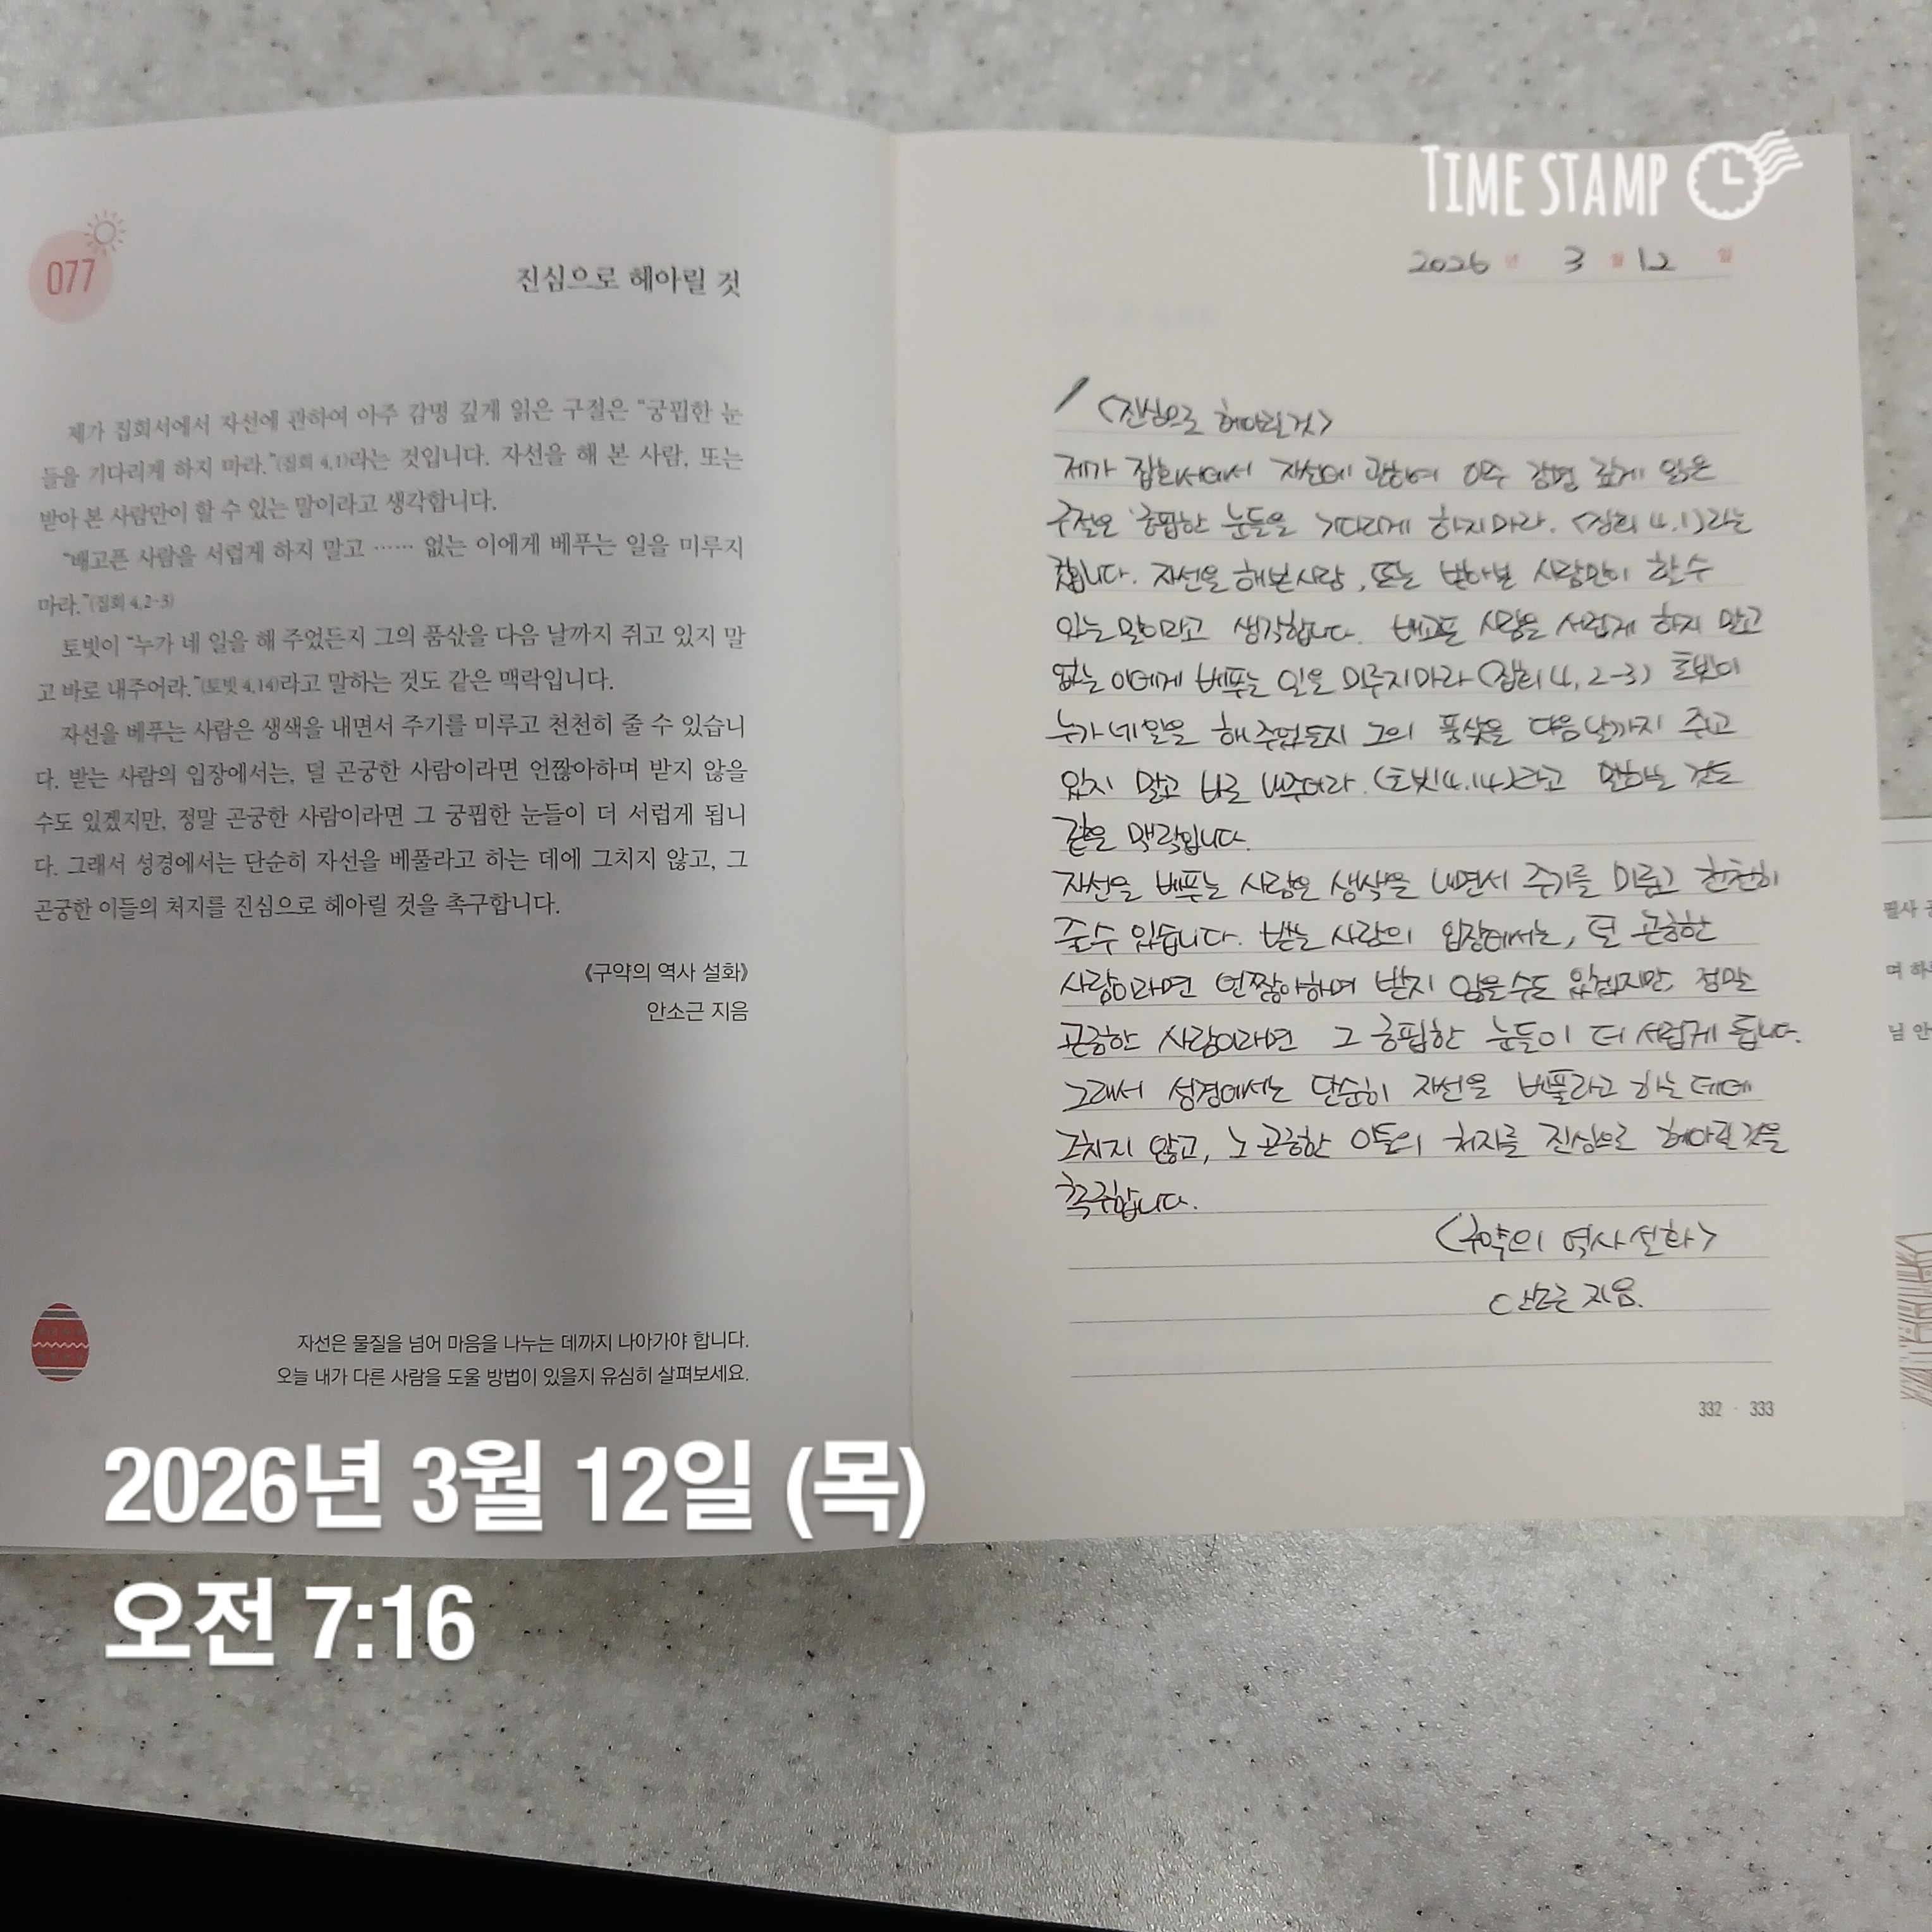 TIME STAMP
077
진심으로 헤아릴 것
제가 집회서에서 자선에 관하여 아주 감명 깊게 읽은 구절은 “궁핍한 눈
들을 기다리게 하지 마라.”(집회 4,1)라는 것입니다. 자선을 해 본 사람, 또는
받아 본 사람만이 할 수 있는 말이라고 생각합니다.
“배고픈 사람을 서럽게 하지 말고 …… 없는 이에게 베푸는 일을 미루지
마라.”(집회 4,2-3)
토빗이 “누가 네 일을 해 주었든지 그의 품삯을 다음 날까지 쥐고 있지 말
고 바로 내주어라.”(토빗 4,14)라고 말하는 것도 같은 맥락입니다.
자선을 베푸는 사람은 생색을 내면서 주기를 미루고 천천히 줄 수 있습니
다. 받는 사람의 입장에서는, 덜 곤궁한 사람이라면 언짢아하며 받지 않을
수도 있겠지만, 정말 곤궁한 사람이라면 그 궁핍한 눈들이 더 서럽게 됩니
다. 그래서 성경에서는 단순히 자선을 베풀라고 하는 데에 그치지 않고, 그
곤궁한 이들의 처지를 진심으로 헤아릴 것을 촉구합니다.
《구약의 역사 설화》
안소근 지음
자선은 물질을 넘어 마음을 나누는 데까지 나아가야 합니다.
오늘 내가 다른 사람을 도울 방법이 있을지 유심히 살펴보세요.
2026년 3월 12일
<진심으로 헤아릴것>
제가 집회서에서 자선에 관하여 아주 감명 깊게 읽은
구절은 '궁핍한 눈들을 기다리게 하지마라. (집회 4.1)라는
것입니다. 자선을 해본사람, 또는 받아본 사람만이 할수
있는 말이라고 생각합니다. 배고픈 사람을 서럽게 하지 말고
없는 이에게 베푸는 일을 미루지마라 (집회 4, 2-3) 토빗이
누가 네일을 해주었든지 그의 품삯을 다음날까지 쥐고
있지 말고 바로 내주어라. (토빗4.14)라고 말하는 것도
같은 맥락입니다.
자선을 베푸는 사람은 생색을 내면서 주기를 미루고 천천히
줄수 있습니다. 받는 사람의 입장에서는, 덜 곤궁한
사람이라면 언짢아하며 받지 않을수도 있겠지만, 정말
곤궁한 사람이라면 그 궁핍한 눈들이 더 서럽게 됩니다.
그래서 성경에서는 단순히 자선을 베풀라고 하는데에
그치지 않고, 그 곤궁한 이들의 처지를 진심으로 헤아릴것을
촉구합니다.
<구약의 역사 설화>
안소근 지음.
332 · 333
필사
며 하
님 안
2026년 3월 12일 (목)
오전 7:16